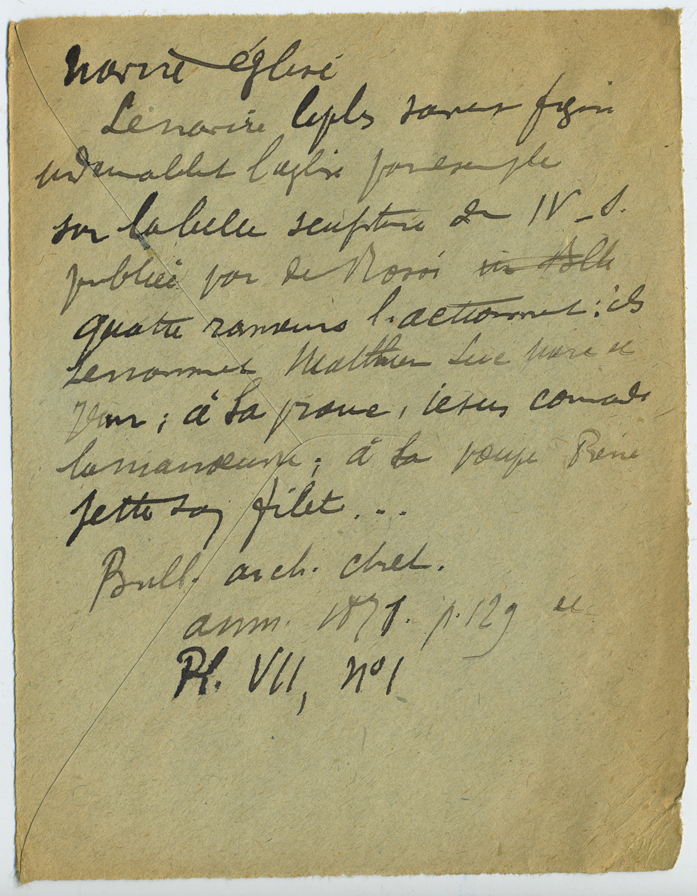 navire église
Le navire le plus souvent figure
indubitablement l'église par exemple
sur la belle sculpture du IV_s.
publiée par de Rossi in Bull
quatre rameurs l'actionnent; ils
se nomment Matthieu Luc Marc et
Jean; à la proue, iesus comande
la manœuvre; à la poupe Pierre
jette son filet...
Bull. arch. chret.
ann. 1871. p. 129 et
Pl. VII, nº1